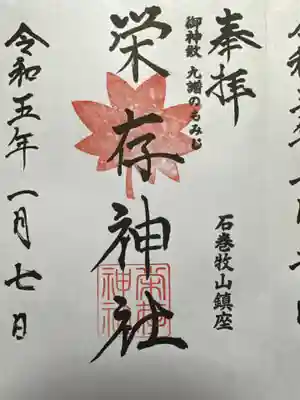 奉拝
石巻牧山鎮座
御神紋 のもみじ
栄存神社
栄存神社
令和五年一月七日